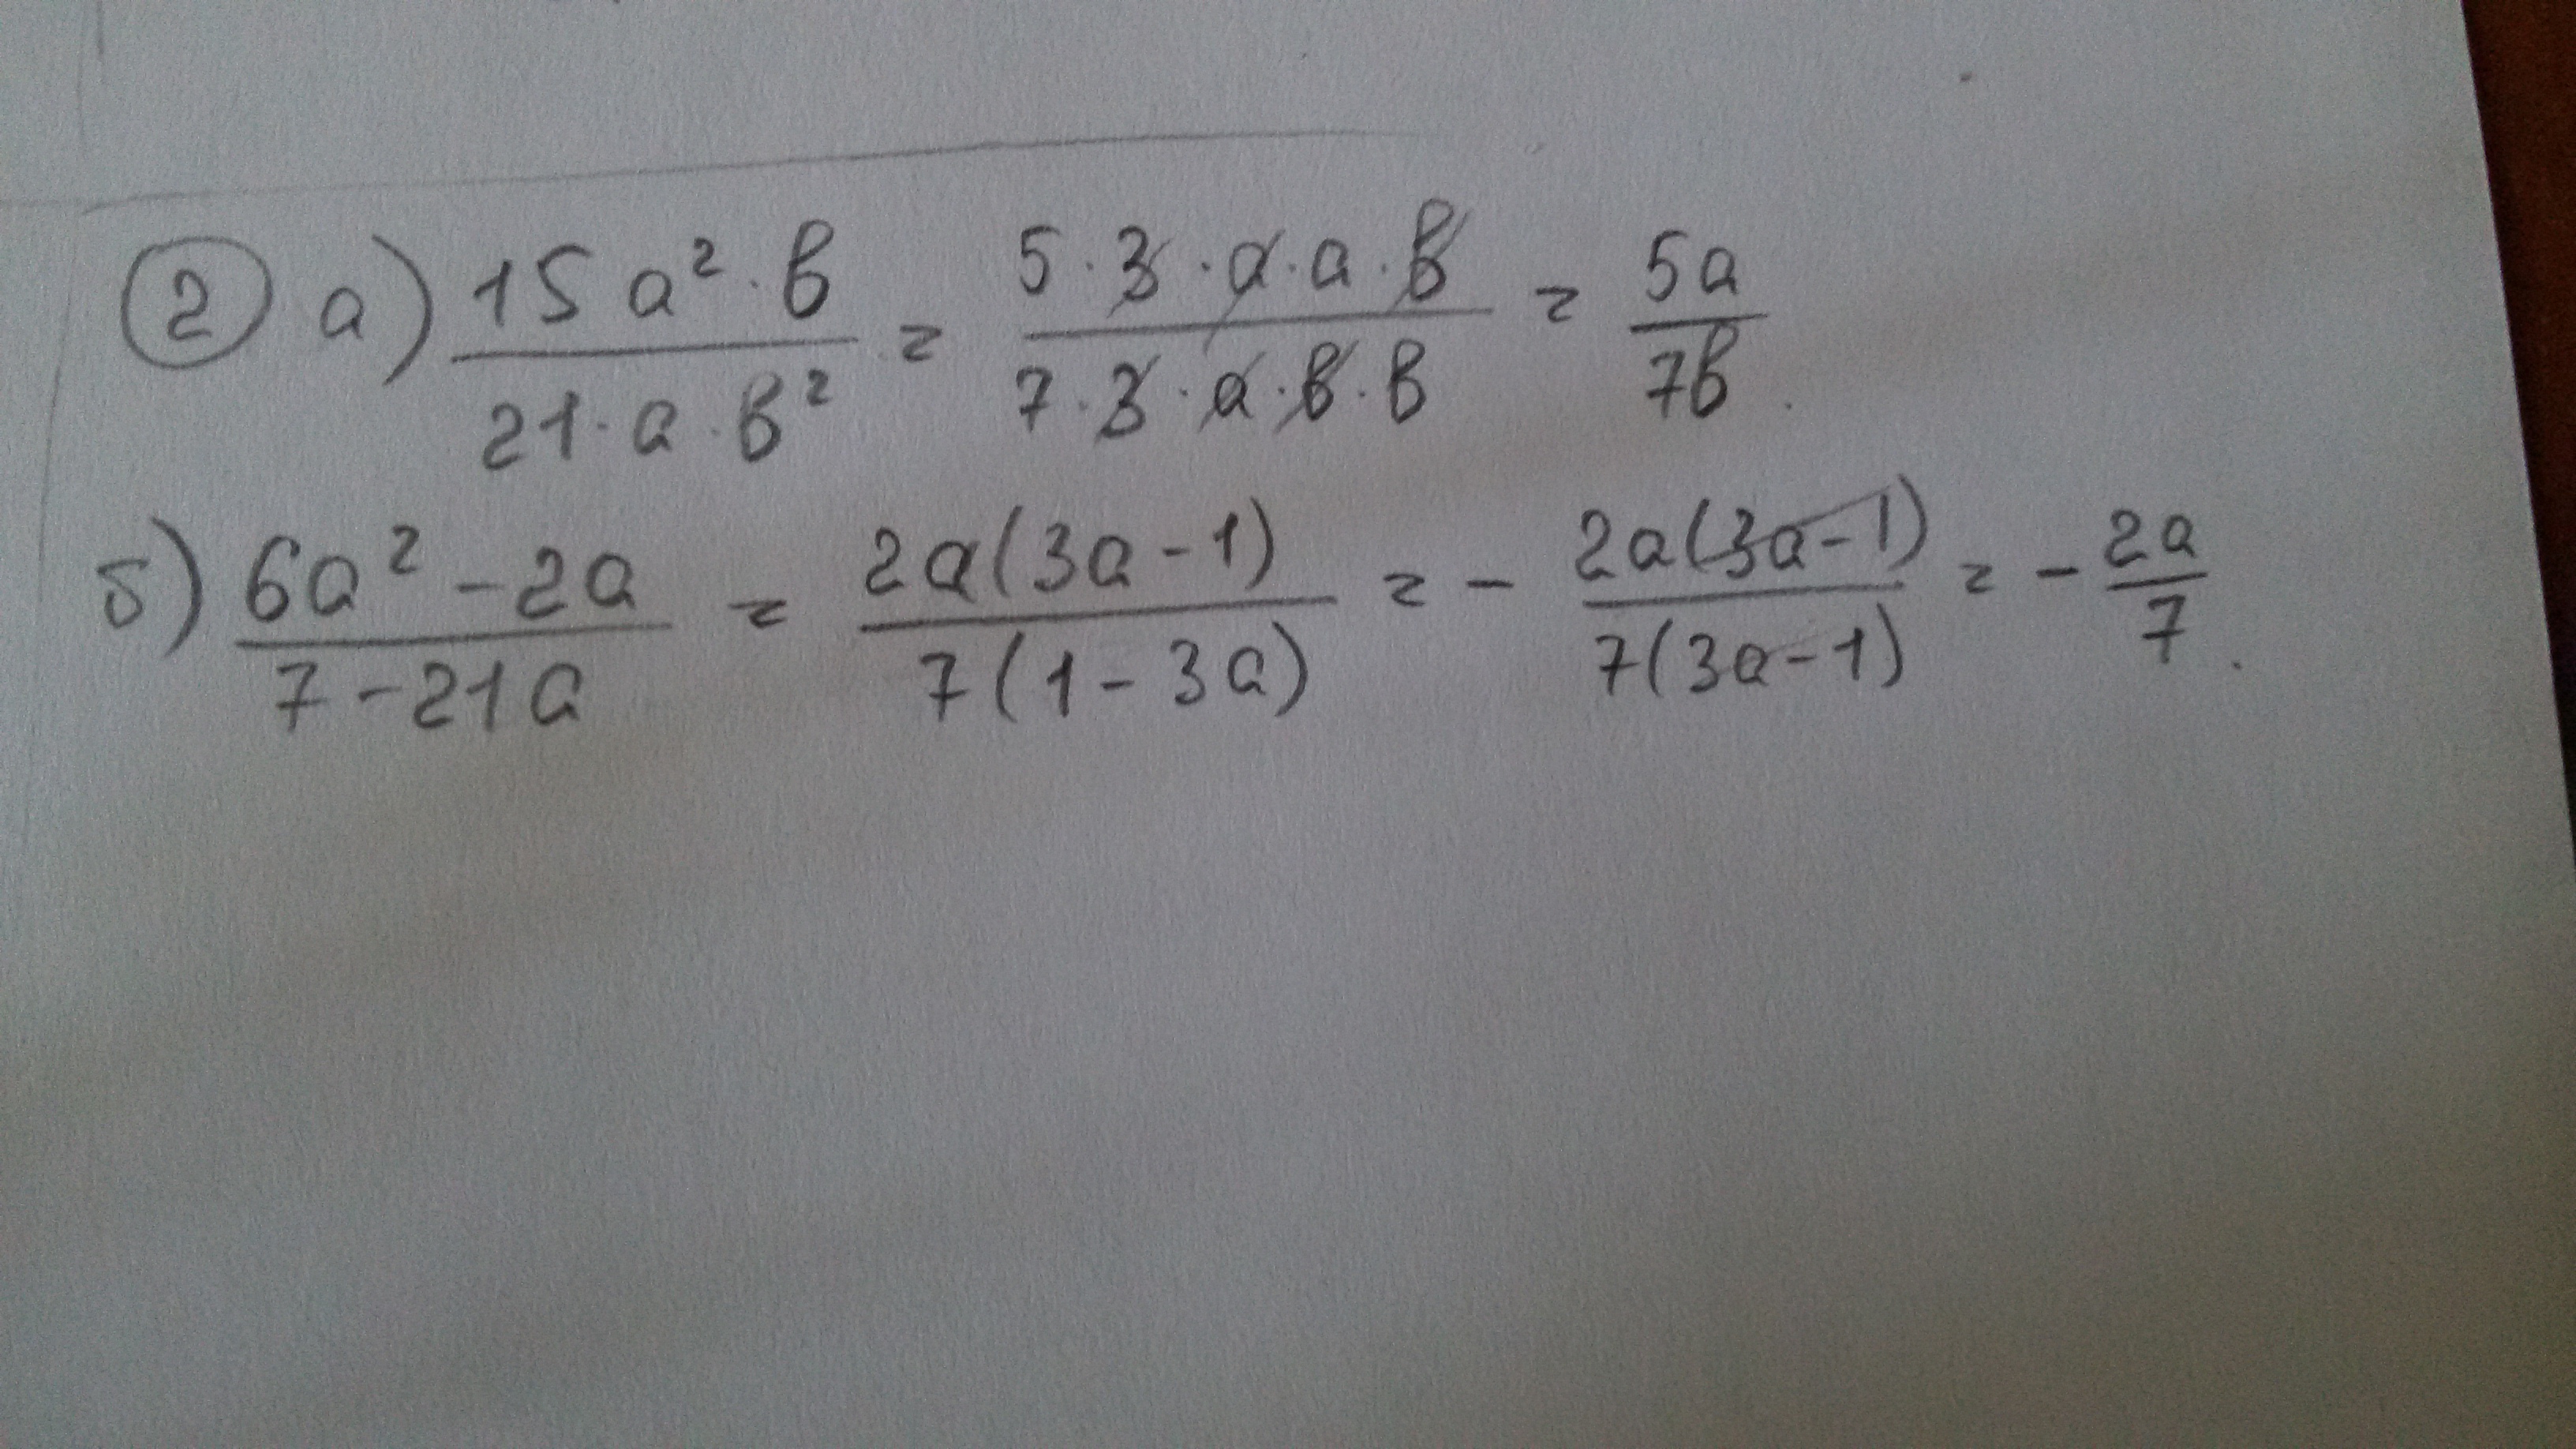 ② а) 15a²·в / 21·a·в² = 5·3·a·a·в / 7·3·a·в·в = 5a / 7в.
б) 6a² - 2a / 7 - 21a = 2a(3a - 1) / 7(1 - 3a) = - 2a(3a - 1) / 7(3a - 1) = - 2a / 7.